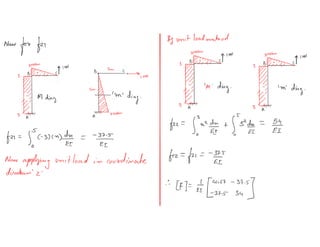 Now for f21
1 unit
B
3
5
A
M diag.
B
C
5m
A
'm' diag.
f21 = ∫₀⁵ (-3)(x) dx/EI = -37.5/EI
Now applying unit load in coordinate
direction '2'
By unit load method
1 unit
B
3
5
A
'M' diag
1 unit
B
3
5
A
'm' diag.
f22 = ∫₀³ x² dx/EI + ∫₀⁵ 3² dx/EI = 54/EI
f12 = f21 = -37.5/EI
∴ [F] = 1/EI [ 41.67 -37.5
-37.5 54 ]